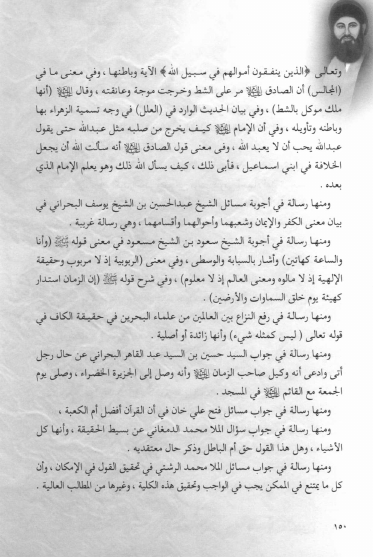 وتعالى ﴿الذين ينفقون أموالهم في سبيل الله﴾ الآية وباطنها ، وفي معنى ما في
(المجالس) أن الصادق ﷺ مر على الشط وخرجت موجة وعانقته ، وقال ﷺ (أنها
ملك موكل بالشط) ، وفي بيان الحديث الوارد في (العلل) في وجه تسمية الزهراء بها
وباطنه وتأويله ، وفي أن الإمام ﷺ كيف يخرج من صلبه مثل عبدالله حتى يقول
عبدالله يحب أن لا يعبد الله ، وفى معنى قول الصادق ﷺ أنه سألت الله أن يجعل
الخلافة في ابني اسماعيل ، فأبى ذلك ، كيف يسأل الله ذلك وهو يعلم الإمام الذي
بعده .
ومنها رسالة في أجوبة مسائل الشيخ عبدالحسين بن الشيخ يوسف البحراني في
بيان معنى الكفر والإيمان وشعبهما وأحوالهما وأقسامهما ، وهي رسالة غريبة .
ومنها رسالة في أجوبة الشيخ سعود بن الشيخ مسعود في معنى قوله ﷺ (وأنا
والساعة كهاتين) وأشار بالسبابة والوسطى ، وفي معنى (الربوبية إذ لا مربوب وحقيقة
الإلهية إذ لا مالوه ومعنى العالم إذ لا معلوم) ، وفي شرح قوله ﷺ (إن الزمان استدار
كهيئة يوم خلق السماوات والأرضين) .
ومنها رسالة في رفع النزاع بين العالمين من علماء البحرين في حقيقة الكاف في
قوله تعالى ( ليس كمثله شيء) وأنها زائدة أو أصلية .
ومنها رسالة في جواب السيد حسين بن السيد عبد القاهر البحراني عن حال رجل
أتى وادعى أنه وكيل صاحب الزمان ﷺ وأنه وصل إلى الجزيرة الخضراء ، وصلى يوم
الجمعة مع القائم ﷺ في المسجد .
ومنها رسالة في جواب مسائل فتح علي خان في أن القرآن أفضل أم الكعبة ،
ومنها رسالة في جواب سؤال الملا محمد الدمغاني عن بسيط الحقيقة ، وأنها كل
الأشياء ، وهل هذا القول حق أم الباطل وذكر حال معتقديه .
ومنها رسالة في جواب مسائل الملا محمد الرشتي في تحقيق القول في الإمكان ، وأن
كل ما يمتنع في الممكن يجب في الواجب وتحقيق هذه الكلية ، وغيرها من المطالب العالية .
١٥٠